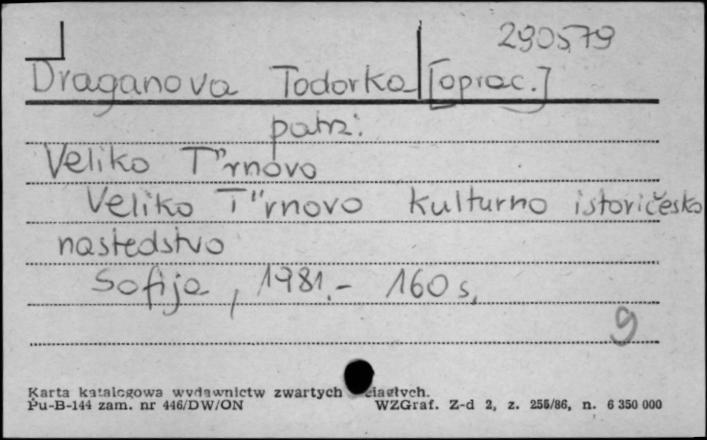 290579
Draganova Todorka [oprac.]
patrz:
Veliko T"rnovo
Veliko T"rnovo kulturno istoričesko
nasledstvo
Sofija, 1981.- 160 s.
9
Karta katalogowa wydawnictw zwartych ciągłych.
Pu-B-144 zam. nr 446/DW/ON WZGraf. Z-d 2, z. 255/86, n. 6 350 000